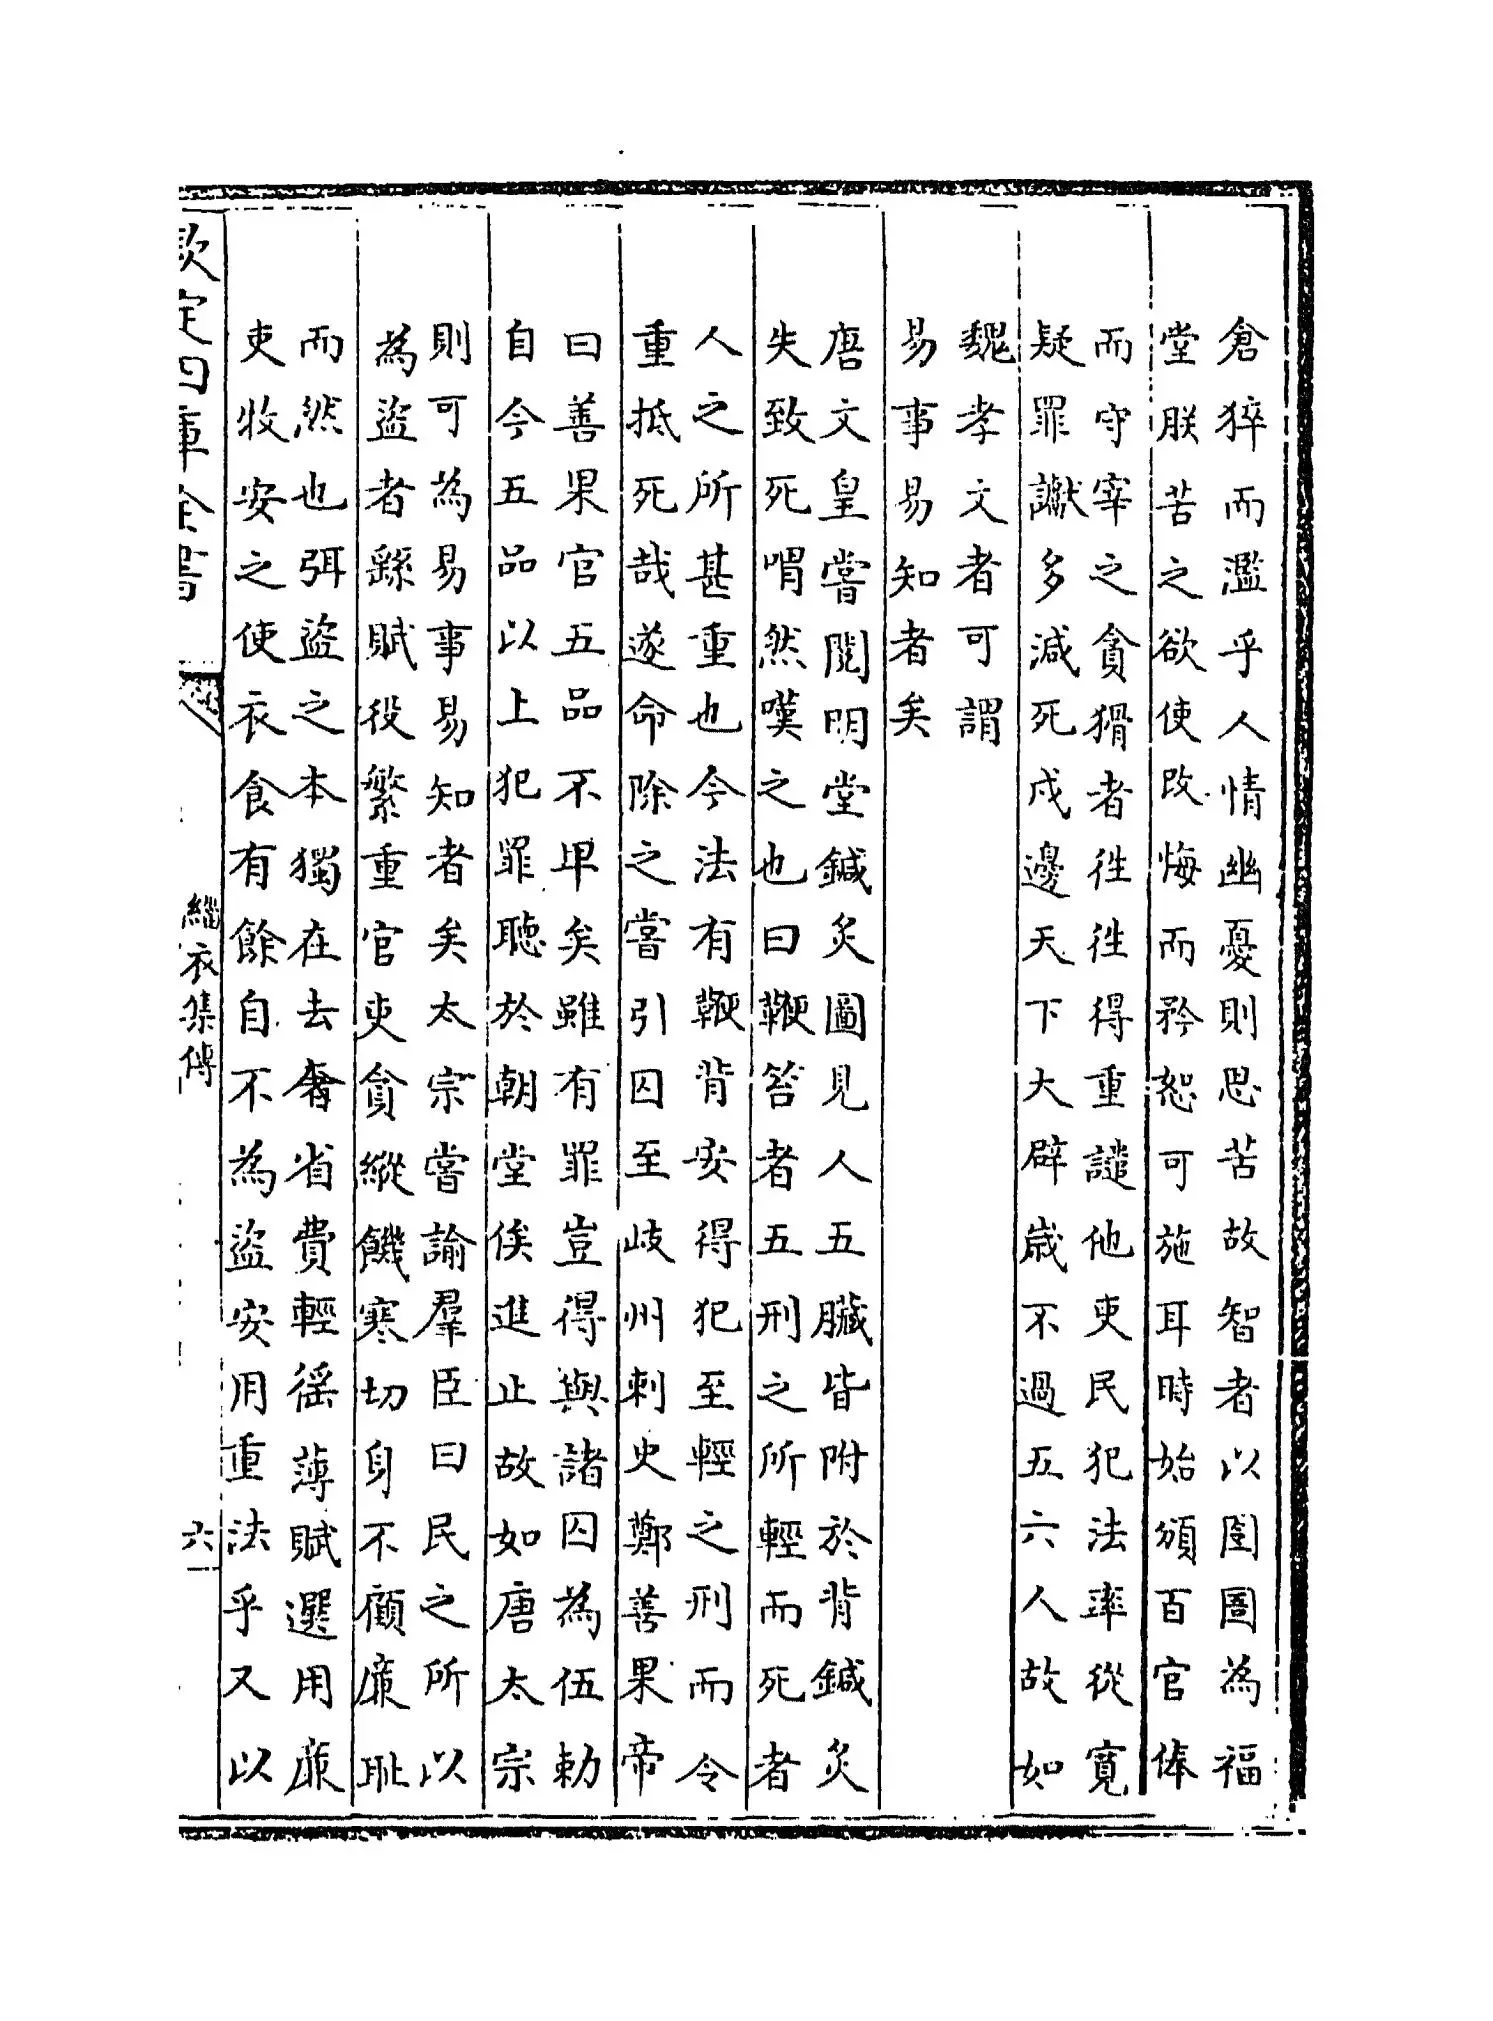 倉猝而濫乎人情幽憂則思苦故智者以囹圄為福
堂朕苦之欲使改悔而矜恕可施耳時始頒百官俸
而守宰之貪猾者徃徃得重譴他吏民犯法率從寛
疑罪讞多減死戍邊天下大辟嵗不過五六人故如
魏孝文者可謂
易事易知者矣
唐文皇嘗閲明堂鍼灸圖見人五臟皆附於背鍼灸
失致死喟然嘆之也曰鞭笞者五刑之所輕而死者
人之所甚重也今法有鞭背安得犯至輕之刑而令
重抵死哉遂命除之嘗引囚至岐州刺史鄭善果帝
曰善果官五品不卑矣雖有罪豈得與諸囚為伍勅
自今五品以上犯罪聽於朝堂俟進止故如唐太宗
則可為易事易知者矣太宗嘗諭羣臣曰民之所以
為盜者繇賦役繁重官吏貪縱饑寒切身不顧廉恥
而然也弭盜之本獨在去奢省費輕徭薄賦選用廉
吏牧安之使衣食有餘自不為盜安用重法乎又以
欽定四庫全書
緇衣集傳
六